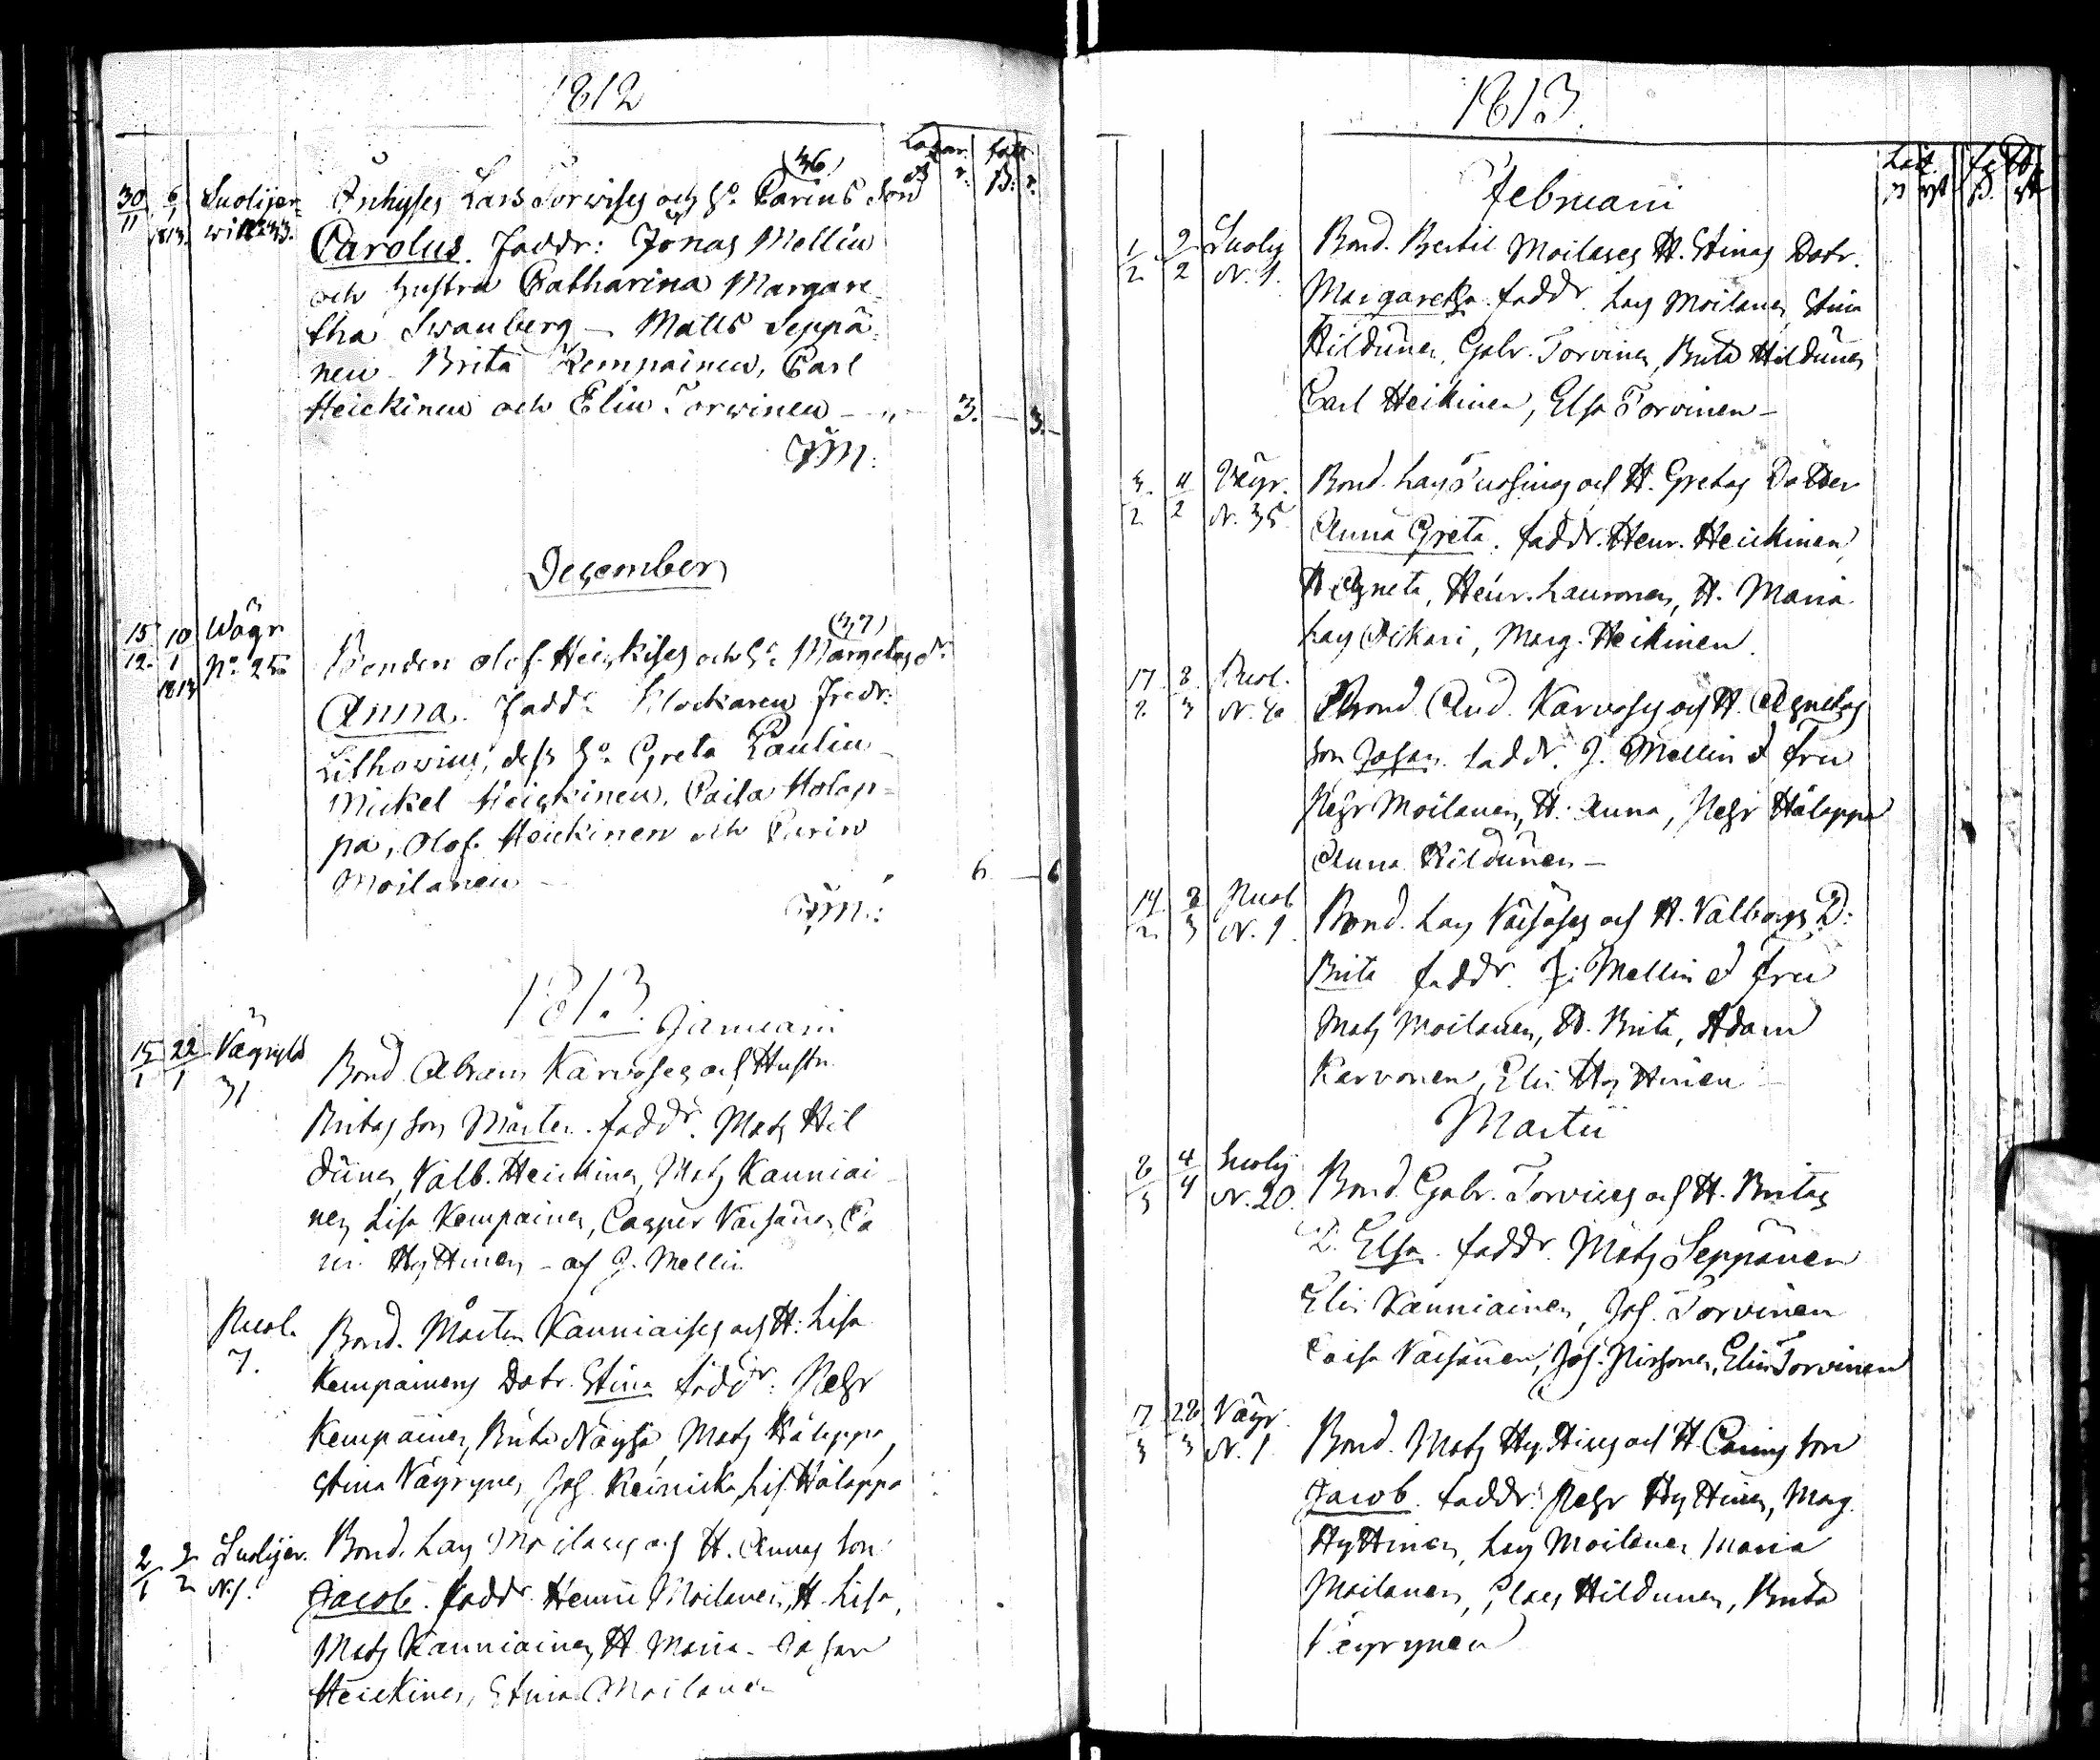 1812
36
30/11 6/1 1813 Suolijer-
Inhyses Lars Torwises och H:o Carins Son
Carolus. Faddr: Jonas Mellin
och hustru Catharina Margare-
tha Swanberg - Matts Seppä-
nen Brita Kempainen, Carl
Heickinen och Elin Torwinen - 3. - 3. -
J M:
December
(37)
15/12 10/1 1813 Wägr N:o 25
Bonden Olof Heickises och H:o Margetas d:r
Anna. Fadd: Klockaren Fredr:
Lithovius, dess H:o Greta Paulin
Mickel Heickinen, Caisa Holap-
pa, Olof Heickinen och Carin
Moilanen - 6 - 6
J M:
1813. Januarii
15/1 22/1 31
Bond Abram Karvoses och Hustr
Britas son Mårten. faddr. Mats Hil
dünen, Valb. Heickinen, Mats Kauniai
nen Lisa Kempainen, Casper Väisänen, Ca
rin Hyttinen - af J. Mellin
Puol. 7.
Bond. Mårten Kauniaises och H: Lisa
Kempainens Dotr. Stina faddr: Pehr
Kempainen, Brita Näyhä, Mats Hålappa,
Stina Väyrynen, Joh. Keinicke, Lis. Hålappa
2/1 2/2 Suolijer. N. 1.
Bond. Lars Moilases och H. Annas son
Jacob. Faddr Moilanen, H. Lisa,
Mats Kauniainen, H. Maria. Johan
Heickinen, Stina Moilanen
1813.
Februarii
1/2 2/2 Suolij N. 1.
Bond. Bertil Moilases H. Stinas Dotr.
Margareta. faddr. Lars Moilanen, Stina
Hildünen, Gabr. Torvinen, Brita Hildünen
Carl Heikinen, Elsa Torvinen -
3/2 4/2 Väyr. N. 35
Bond. Lars och H. Gretas Dotter
Anna Greta. faddr. Henr. Heickinen,
H. Agneta, Henr. Lauronen, H. Maria
Lars Pikari, Marg. Heikinen.
17/2 8/3 Puol.
Bond. And. Karvoses och H. Agnetas
son Johan. faddr. J. Mellin et fru
Pehr Moilanen, H. Anna, Pehr Hålappa
Anna Hildünen -
14/2 8/3 Puol N. 1.
Bond. Lars Väisäses och H. Valborgs D:
Brita faddr. J: Mellin et fru
Mats Moilanen, H. Brita, Adam
Karvonen, Elin Hyttinen -
Martii
8/3 4/4 Suolij N. 20.
Bond. Gabr. Torvises och H. Britas
D. Elsa. faddr. Mats Seppänen
Elin Kauniainen, Joh. Torvinen
Caisa Väisänen, Joh. Elin Torvinen
17/3 28/3 Väyr. N. 1.
Bond. Mats Hyttises och H. Carins son
Jacob. faddr: Pehr Hyttinen, Marg.
Hyttinen, Lars Moilanen, Maria
Moilanen, Clas Hildunen, Brita
Väyrynen